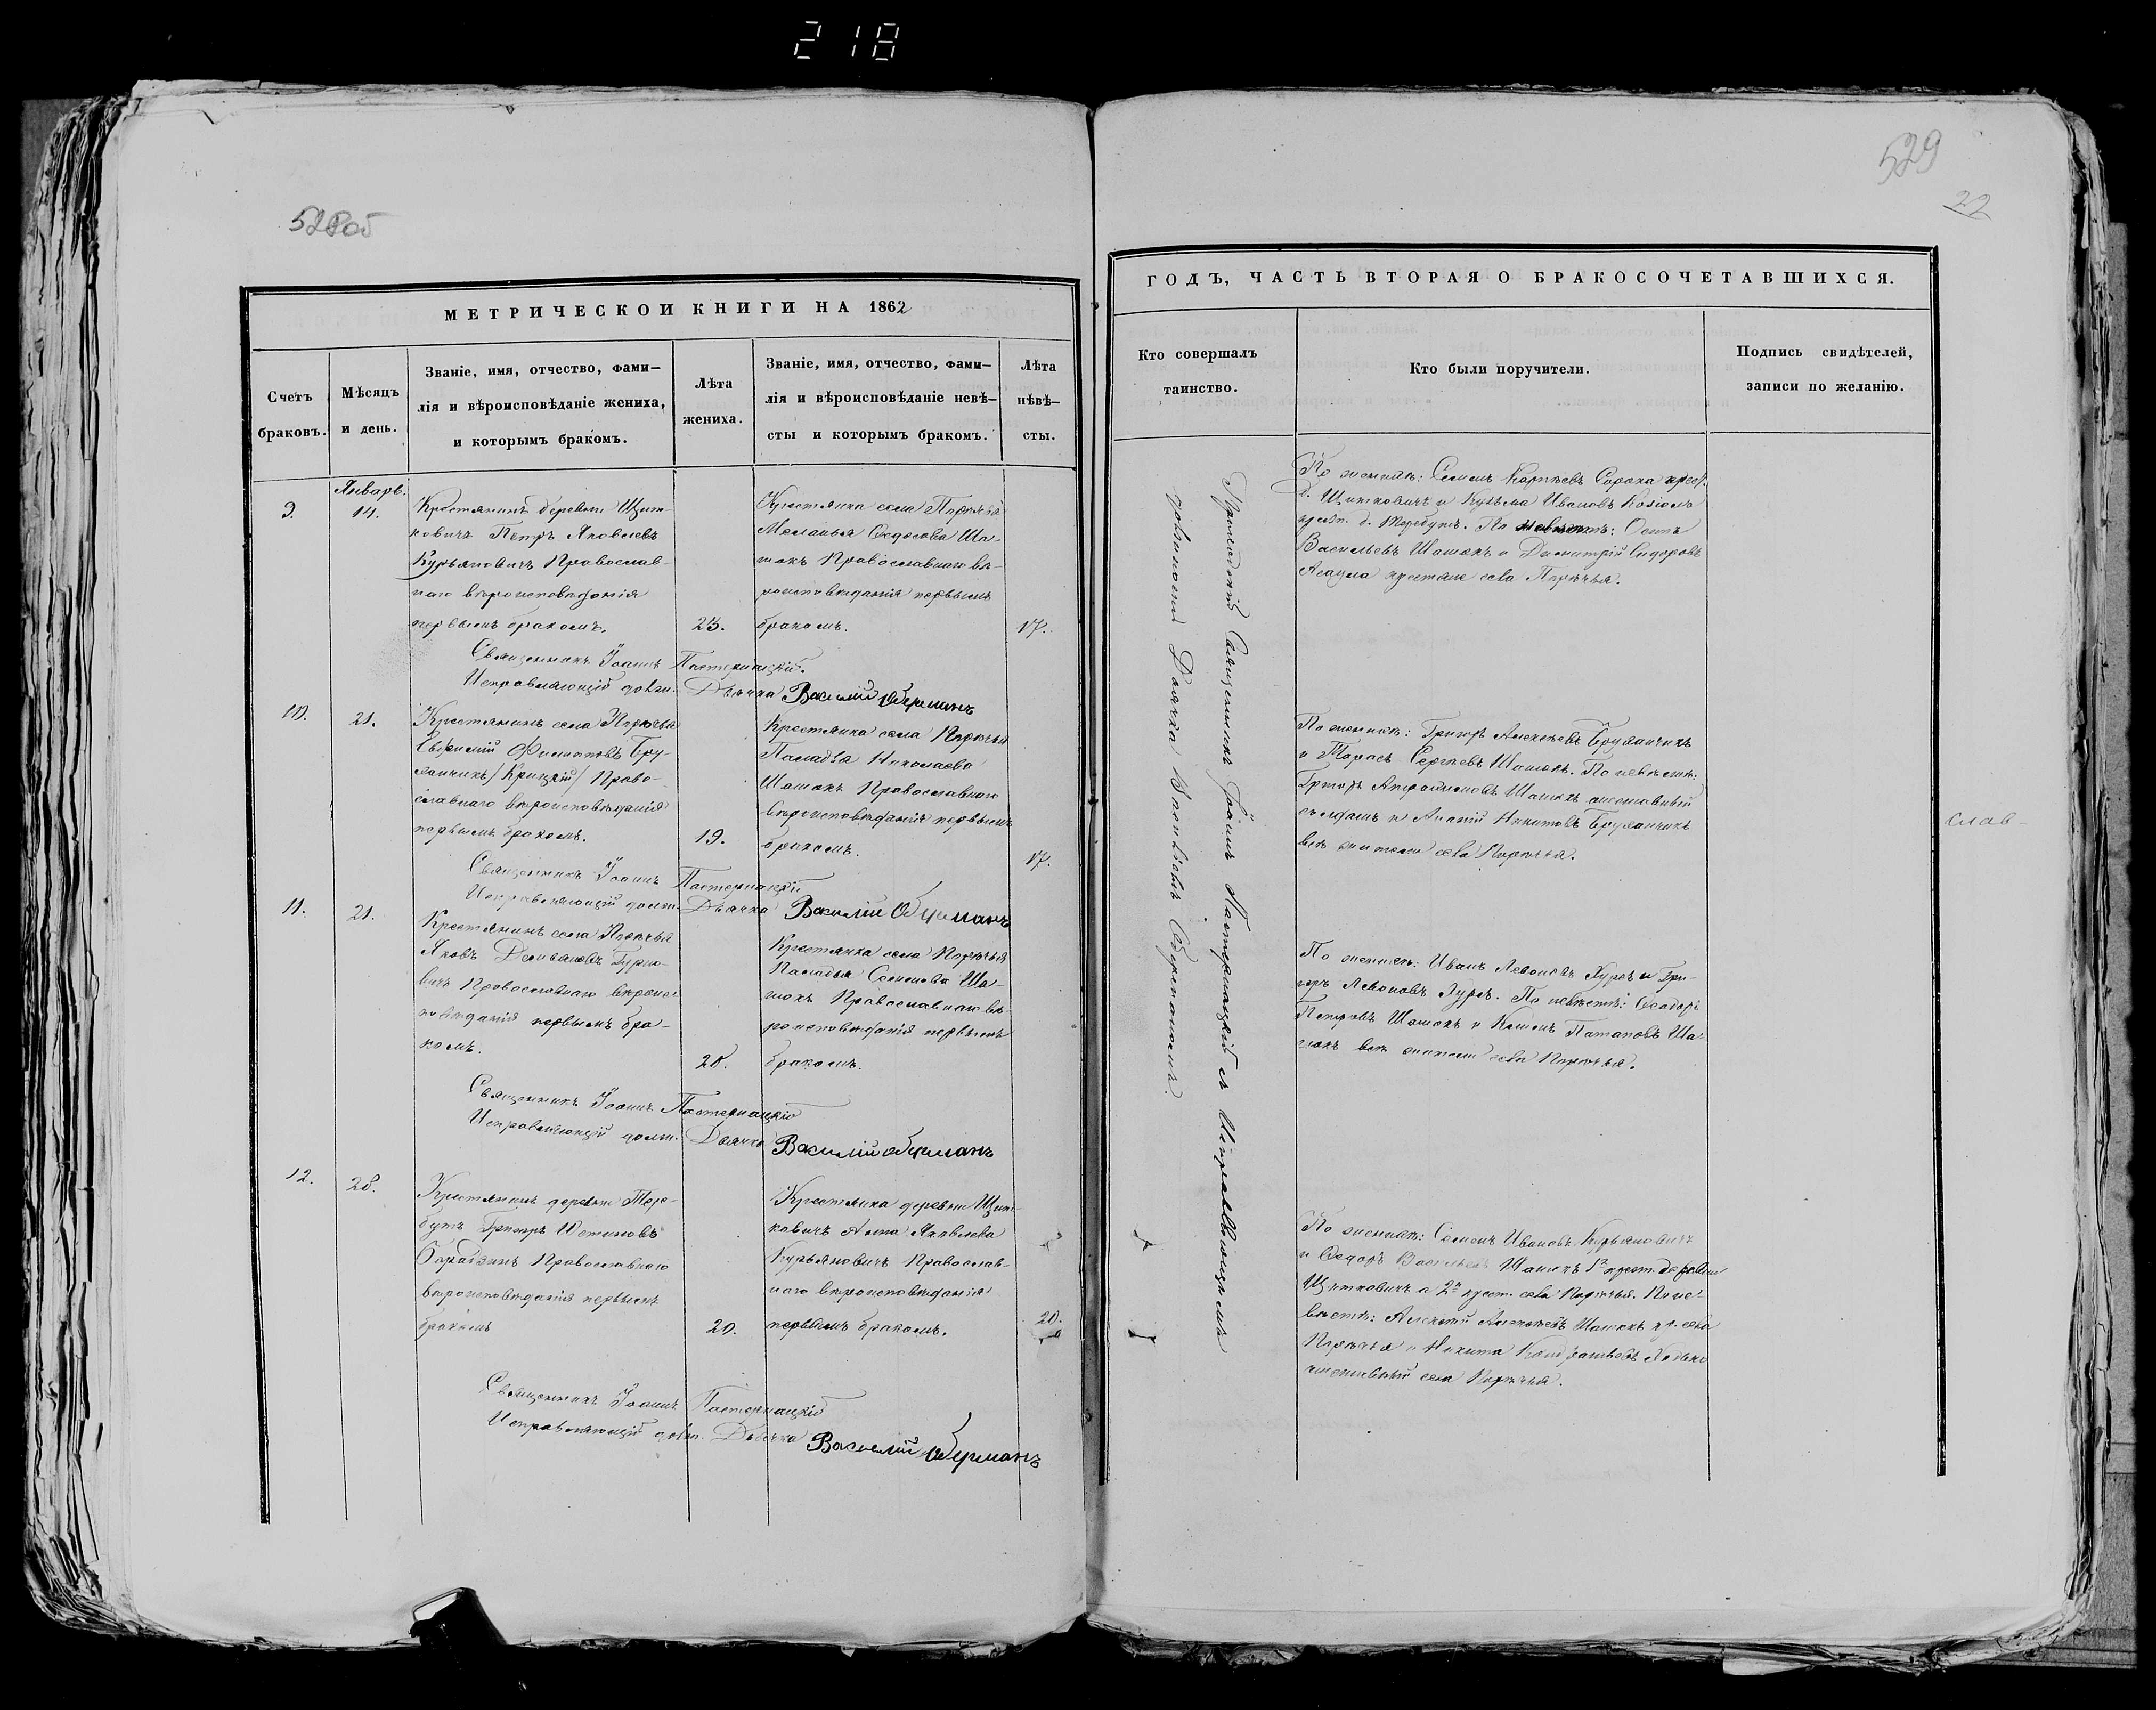 218
528об
МЕТРИЧЕСКОЙ КНИГИ НА 1862
Счетъ
браковъ.
Мѣсяцъ
и день.
Званіе, имя, отчество, фами—
лія и вѣроисповѣданіе жениха,
и которымъ бракомъ.
Лѣта
жениха.
Званіе, имя, отчество, фами—
лія и вѣроисповѣданіе невѣ—
сты и которымъ бракомъ.
Лѣта
нѣвѣ—
сты.
Январь.
9.
14.
Крестьянинъ деревни Щит-
ковичъ Петръ Яковлевъ
Курьяновичъ Православ-
наго вѣроисповѣданія
первымъ бракомъ.
23.
Крестьянка села Порѣчья
Меланья Федосова Ша-
токъ Православнаго вѣ-
роисповѣданія первымъ
бракомъ.
17.
Священникъ Іоаннъ Пастернацкій.
Исправляющій должн. Дьячка Василій Обуманъ
10.
21.
Крестьянинъ села Порѣчья
Евфимій Филиповъ Бру-
/Крицкій/ Право-
славнаго вѣроисповѣданія
первымъ бракомъ.
19.
Крестьянка села Порѣчья
Паладья Николаева
Шатокъ Православнаго
вѣроисповѣданія первымъ
бракомъ.
17.
Священникъ Іоаннъ Пастернацкій
Исправляющій должн. Дьячка Василій Обуманъ
11.
21.
Крестьянинъ села Порѣчья
Яковъ Демьяновъ
Православнаго вѣроис-
повѣданія первымъ бра-
комъ.
28.
Крестьянка села Порѣчья
Паладья Семенова Ша-
токъ Православнаго вѣ-
роисповѣданія первымъ
бракомъ.
Священникъ Іоаннъ Пастернацкій
Исправляющій должн. Дьячка Василій Обуманъ
12.
28.
Крестьянинъ деревни Тере-
бутъ Григоръ Устиновъ
Православнаго
вѣроисповѣданія первымъ
бракомъ
20.
Крестьянка деревни Щит-
ковичъ Анна Яковлева
Курьяновичъ Православ-
наго вѣроисповѣданія
первымъ бракомъ.
20.
Священникъ Іоаннъ Пастернацкій
Исправляющій должн. Дьячка Василій Обуманъ
529
22
ГОДЪ, ЧАСТЬ ВТОРАЯ О БРАКОСОЧЕТАВШИХСЯ.
Кто совершалъ
таинство.
Кто были поручители.
Подпись свидѣтелей,
записи по желанію.
Приходскій Священникъ Іоаннъ Пастернацкій съ Исправляющимъ
должность Дьячка Василіемъ
По женихѣ: Семенъ Карпѣевъ Сорока крест.
д. Щитковичъ и Кузьма Ивановъ
крест. д. Теребутъ. По невѣстѣ: Осипъ
Васильевъ Шатокъ и Димитрій Сидоровъ
крестьяне села Порѣчья.
По женихѣ: Григоръ Алексѣевъ
и Тарасъ Сергѣевъ Шатокъ. По невѣстѣ:
Григоръ Шатокъ
и Ананій Никитовъ
всѣ жители села Порѣчья.
По женихѣ: Иванъ Левоновъ и Гри-
горъ Левоновъ. По невѣстѣ: Феодоръ
Петровъ Шатокъ и Потаповъ Ша-
токъ всѣ жители села Порѣчья.
По женихѣ: Семенъ Ивановъ Курьяновичъ
и Федоръ Васильевъ Шатокъ 1й крест. деревни
Щитковичъ а 2й крест. села Порѣчья. По не-
вѣстѣ: Алексѣй Алексѣевъ Шатокъ кр. села
Порѣчья и Никита Кондратьевъ
села Порѣчья.
слав-